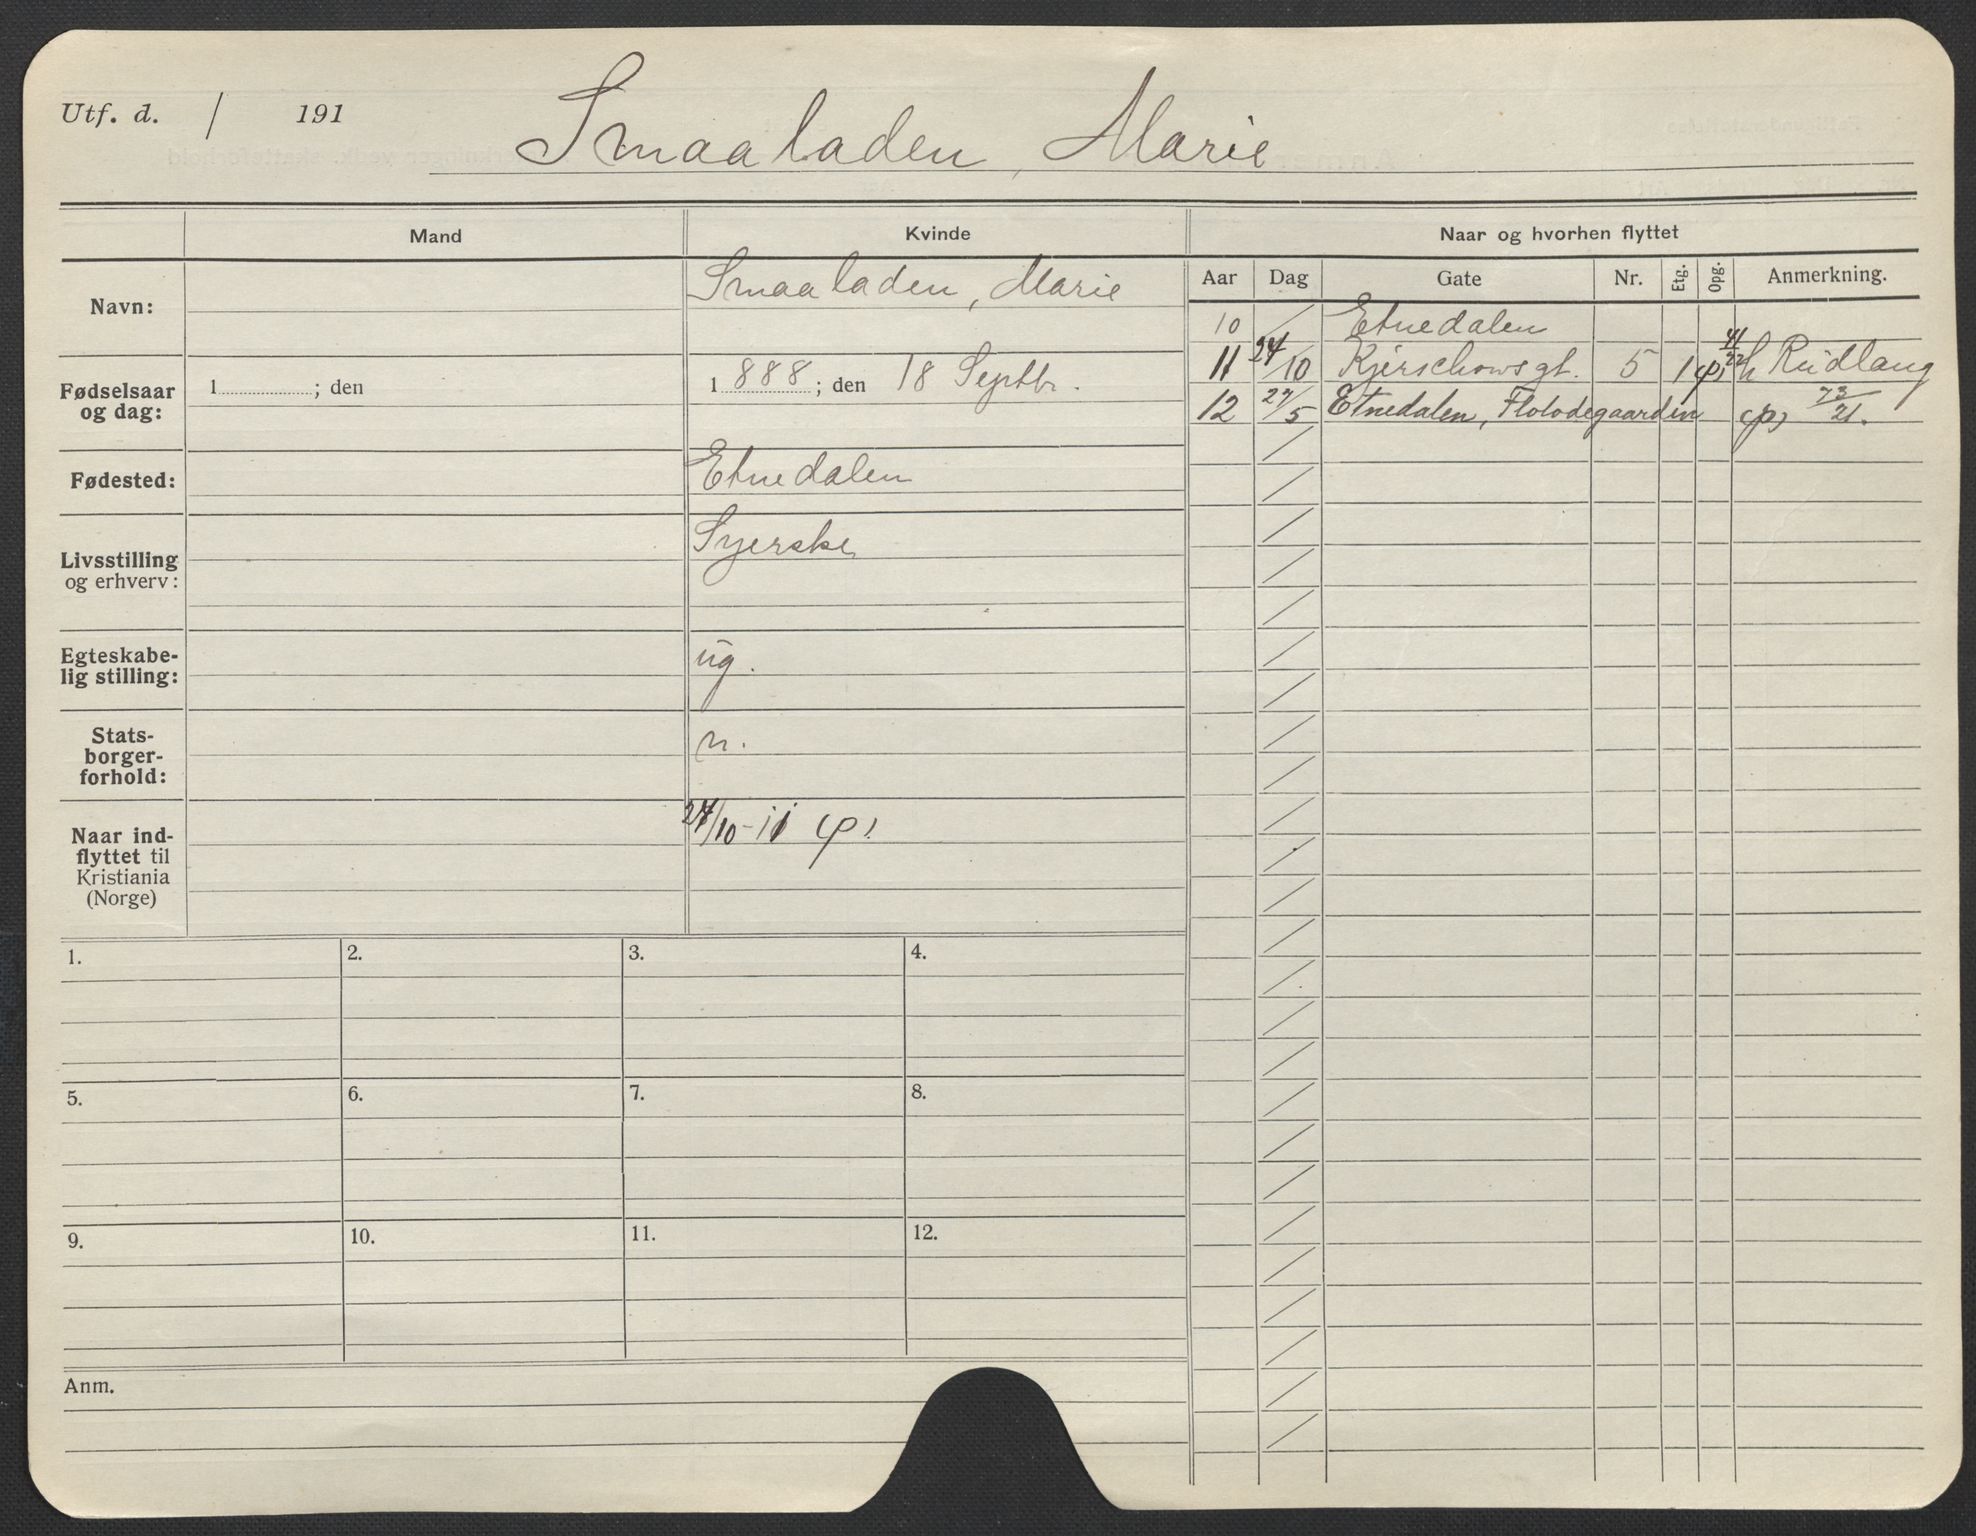 Utf. d. / 191
Smaaladen, Marie
Mand Kvinde Naar og hvorhen flyttet
Aar Dag Gate Nr. Etg. Opg. Anmerkning.
Navn: Smaaladen, Marie
10 / Etnedalen
11 24/10 Kjerschowsgt. 5 1 (p) h Rudlang
12 27/5 Etnedalen, (p) 73/21.
Fødselsaar
og dag:
1 ; den
1888 ; den 18 Septbr.
Fødested: Etnedalen
Livsstilling
og erhverv:
Syerske
Egteskabe-
lig stilling:
ug.
Stats-
borger-
forhold:
n.
Naar ind-
flyttet til
Kristiania
(Norge)
24/10-11 (p).
1. 2. 3. 4.
5. 6. 7. 8.
9. 10. 11. 12.
Anm.